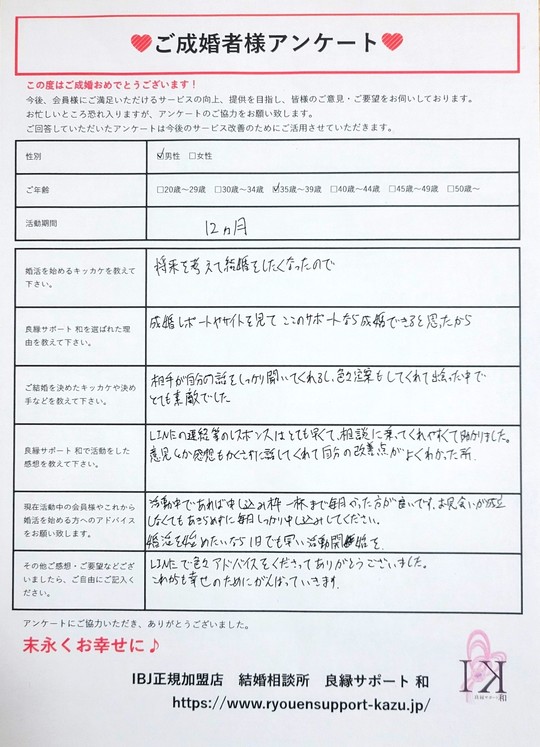 ご成婚者様アンケート
この度はご成婚おめでとうございます！
今後、会員様にご満足いただけるサービスの向上、提供を目指し、皆様のご意見・ご要望をお伺いしております。
お忙しいところ恐れ入りますが、アンケートのご協力をお願い致します。
ご回答していただいたアンケートは今後のサービス改善のためにご活用させていただきます。
性別
☑男性 □女性
ご年齢
□20歳～29歳 □30歳～34歳 ☑35歳～39歳 □40歳～44歳 □45歳～49歳 □50歳～
活動期間
12ヵ月
婚活を始めるキッカケを教えて
下さい。
将来を考えて結婚をしたくなったので
良縁サポート 和を選ばれた理
由を教えて下さい。
成婚レポートやサイトを見て ここのサポートなら成婚できると思ったから
ご結婚を決めたキッカケや決め
手などを教えて下さい。
相手が自分の話をしっかり聞いてくれるし、色々提案もしてくれて出会った中で
とても素敵でした
良縁サポート 和で活動をした
感想を教えて下さい。
LINEの連絡等のレスポンスはとても早くて、相談に乗ってくれやすくて助かりました。
意見とか感想もかくさずに話してくれて自分の改善点がよくわかった所.
現在活動中の会員様やこれから
婚活を始める方へのアドバイス
をお願い致します。
活動中であれば申し込み枠一杯まで毎月やった方が良いです。お見合いが成立
しなくてもあきらめずに毎月しっかり申し込みしてください。
婚活を始めたいなら1日でも早い活動開始を.
その他ご感想・ご要望などござ
いましたら、ご自由にご記入く
ださい。
LINEで色々アドバイスをくださってありがとうございました。
これからも幸せのためにがんばっていきます.
アンケートにご協力いただき、ありがとうございました。
末永くお幸せに♪
IBJ正規加盟店 結婚相談所 良縁サポート 和
https://www.ryouensupport-kazu.jp/
IK
良縁サポート和